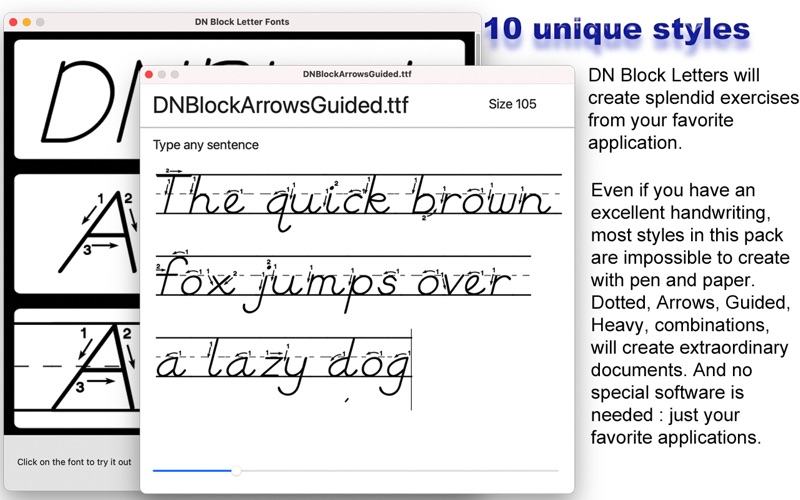 DN Block Letter Fonts
10 unique styles
DNBlockArrowsGuided.ttf
DNBlockArrowsGuided.ttf
Size 105
Type any sentence
The quick brown
fox jumps over
a lazy dog
1 2
3
1 2
3
Click on the font to try it out
DN Block Letters will
create splendid exercises
from your favorite
application.
Even if you have an
excellent handwriting,
most styles in this pack
are impossible to create
with pen and paper.
Dotted, Arrows, Guided,
Heavy, combinations,
will create extraordinary
documents. And no
special software is
needed : just your
favorite applications.